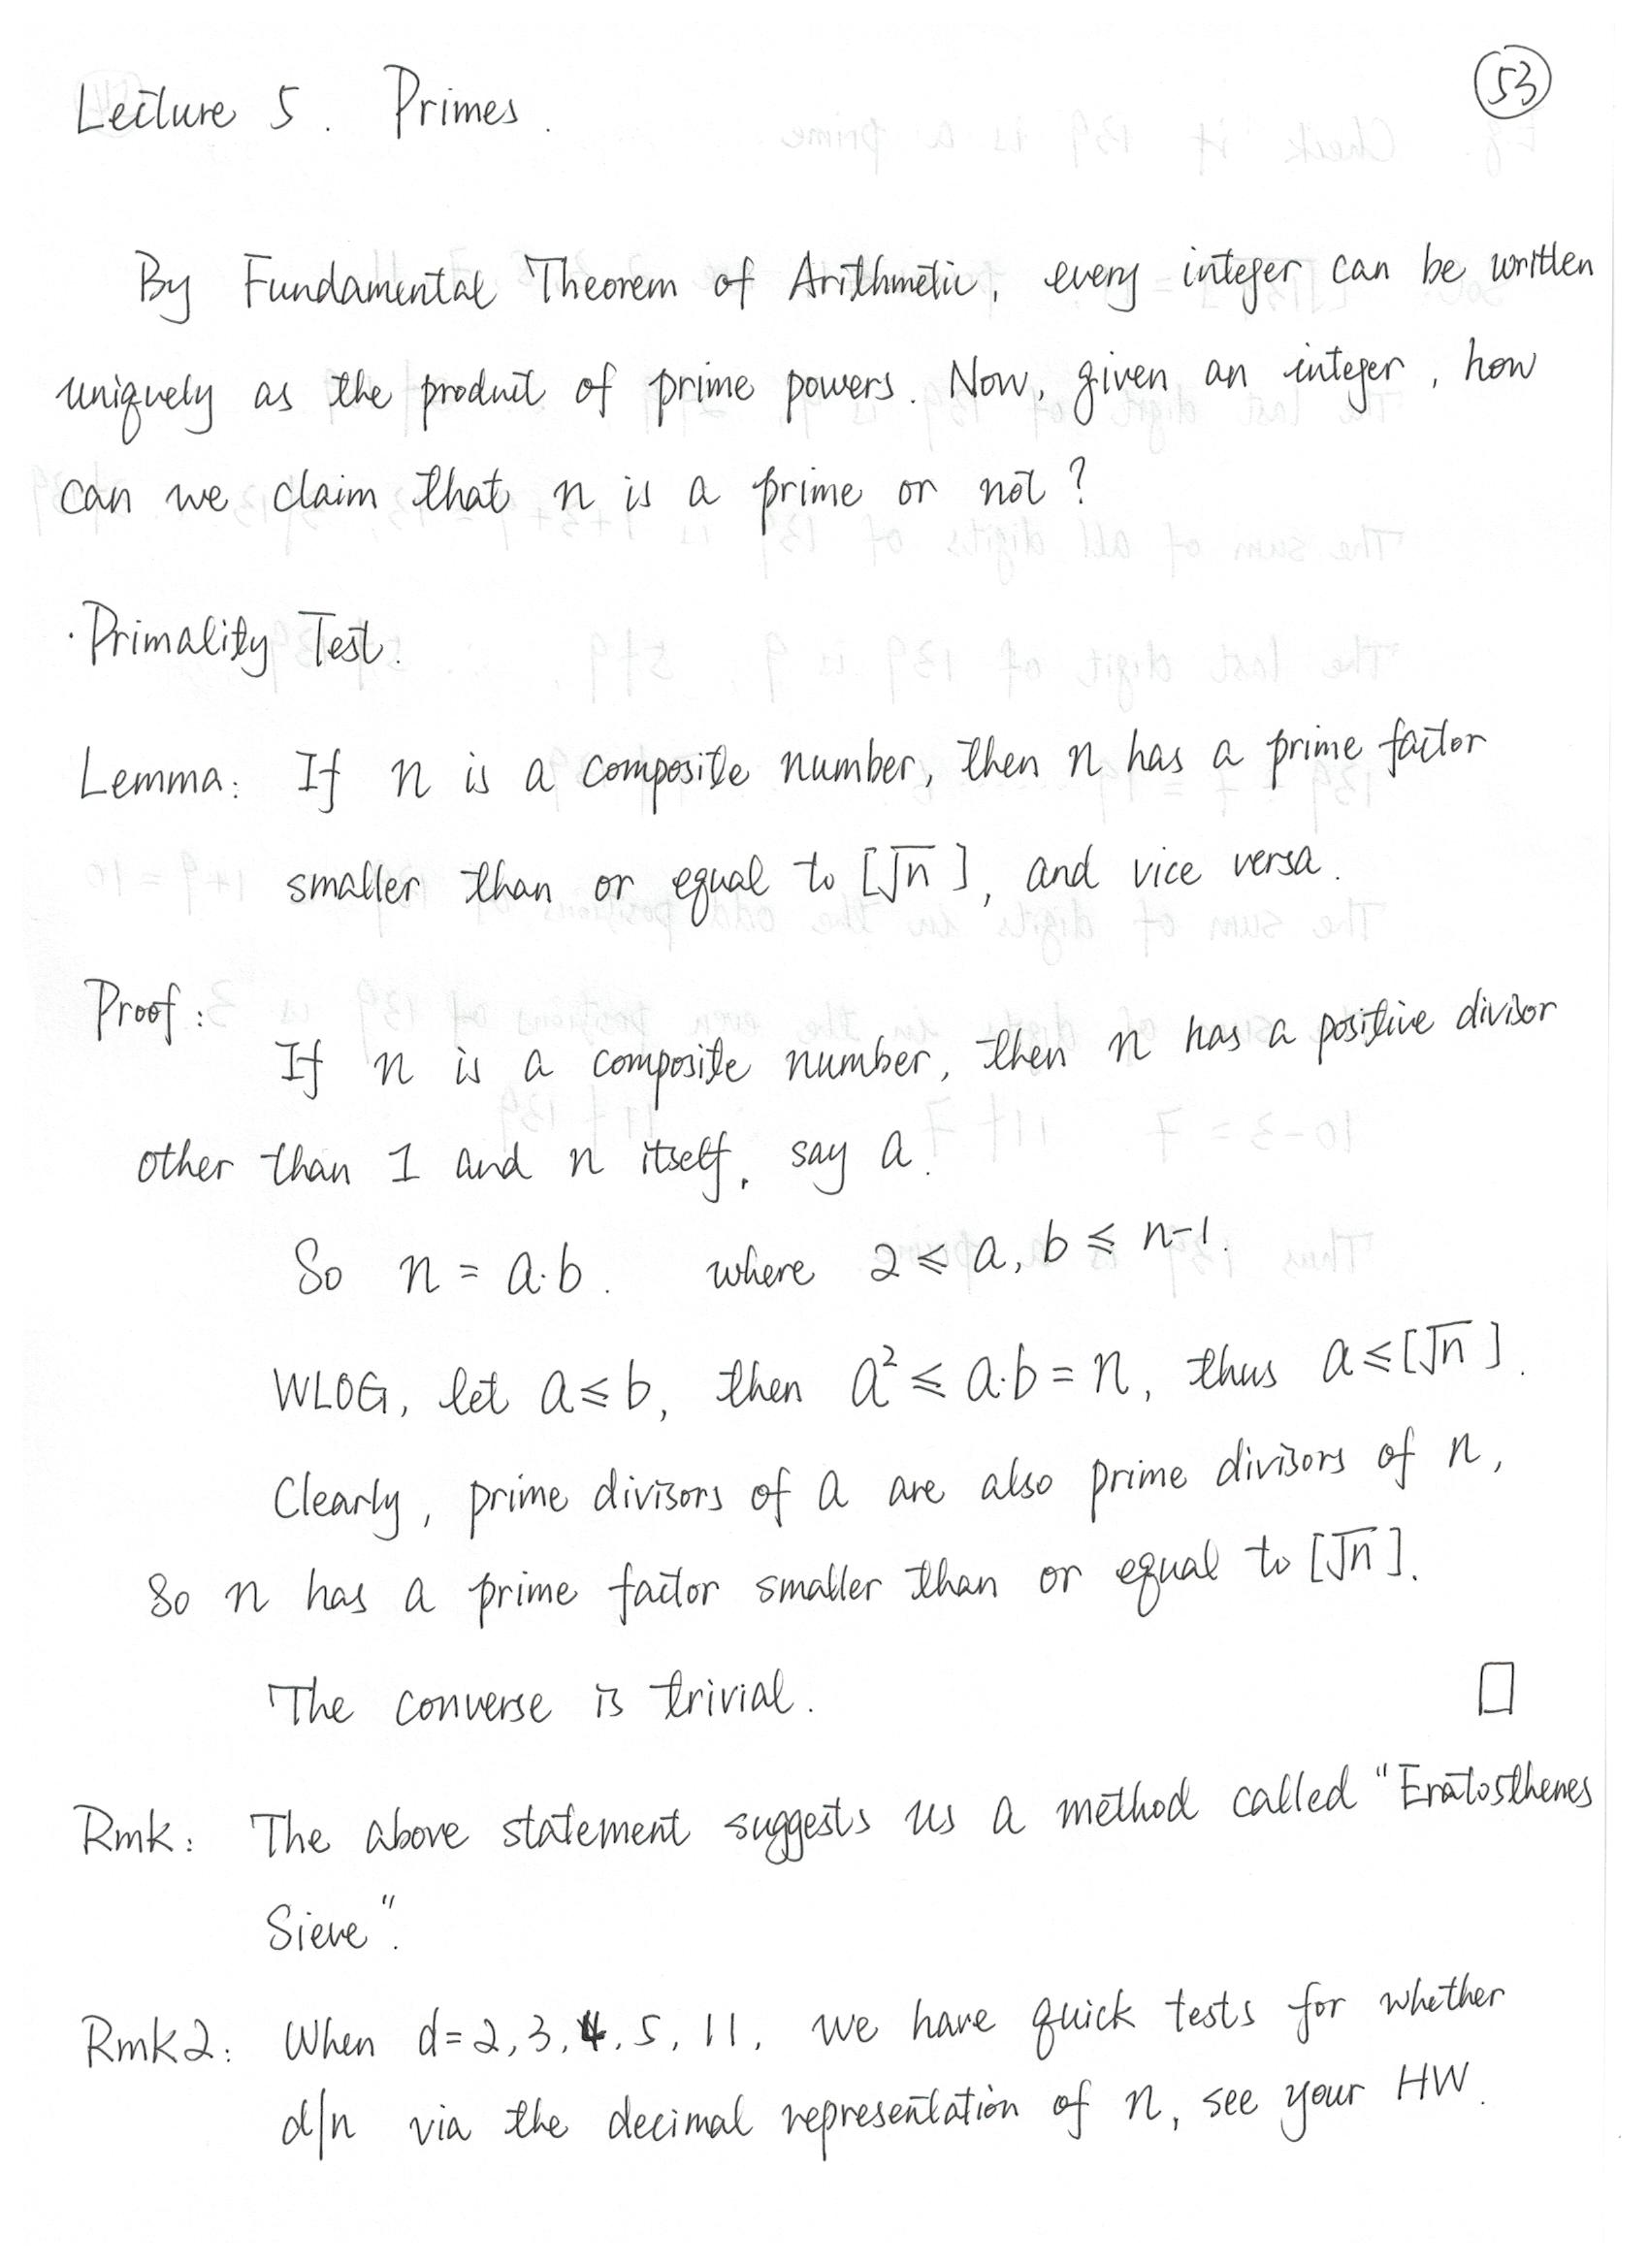 Lecture 5. Primes.
53
By Fundamental Theorem of Arithmetic, every integer can be written
uniquely as the product of prime powers. Now, given an integer, how
can we claim that n is a prime or not?
· Primality Test.
Lemma: If n is a composite number, then n has a prime factor
smaller than or equal to [√n], and vice versa.
Proof:
If n is a composite number, then n has a positive divisor
other than 1 and n itself, say a.
So n = a·b. where 2 ⩽ a, b ⩽ n-1.
WLOG, let a ⩽ b, then a² ⩽ a·b = n, thus a ⩽ [√n].
Clearly, prime divisors of a are also prime divisors of n,
So n has a prime factor smaller than or equal to [√n].
The converse is trivial. □
Rmk: The above statement suggests us a method called "Eratosthenes
Sieve".
Rmk2: When d=2,3,4,5,11, we have quick tests for whether
d|n via the decimal representation of n, see your HW.